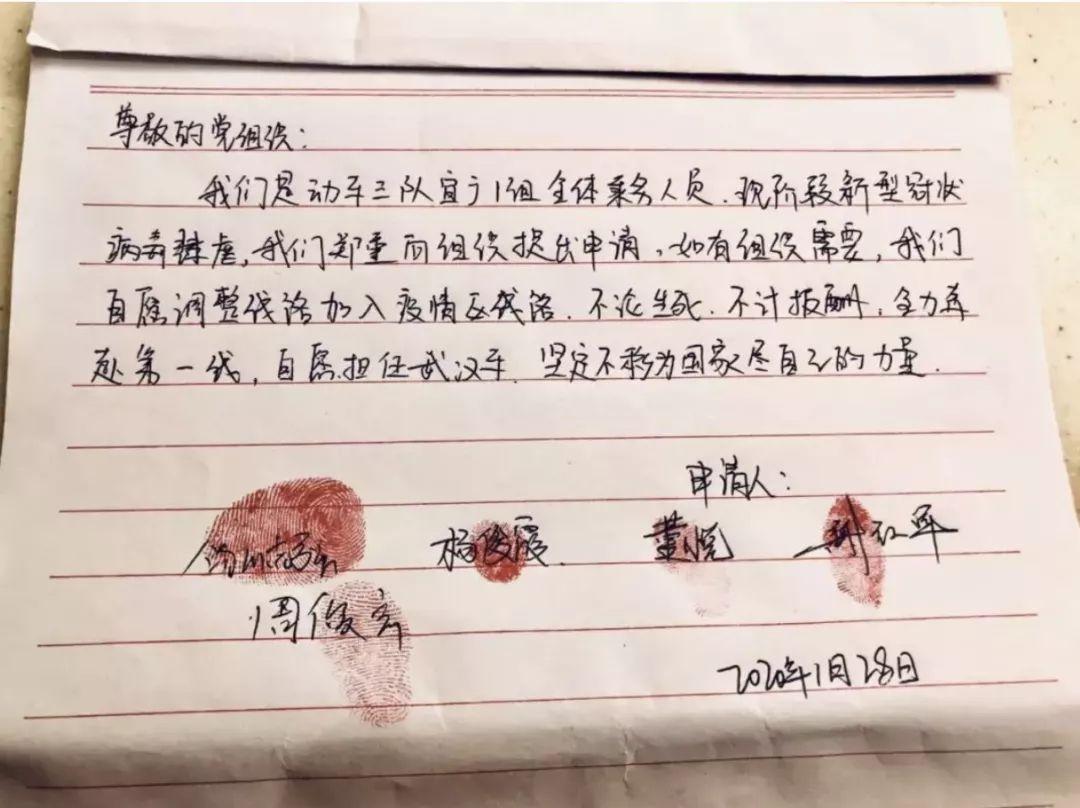 尊敬的党组织：
我们是动车三队宜广1组全体乘务人员.现阶段新型冠状
病毒肆虐,我们郑重向组织提出申请。如有组织需要,我们
自愿调整线路加入疫情区线路.不论生死.不计报酬.全力奔
赴第一线,自愿担任武汉车.坚定不移为国家尽自己的力量.
申请人：
杨俊霞. 董悦 红军
周俊
2020年1月28日